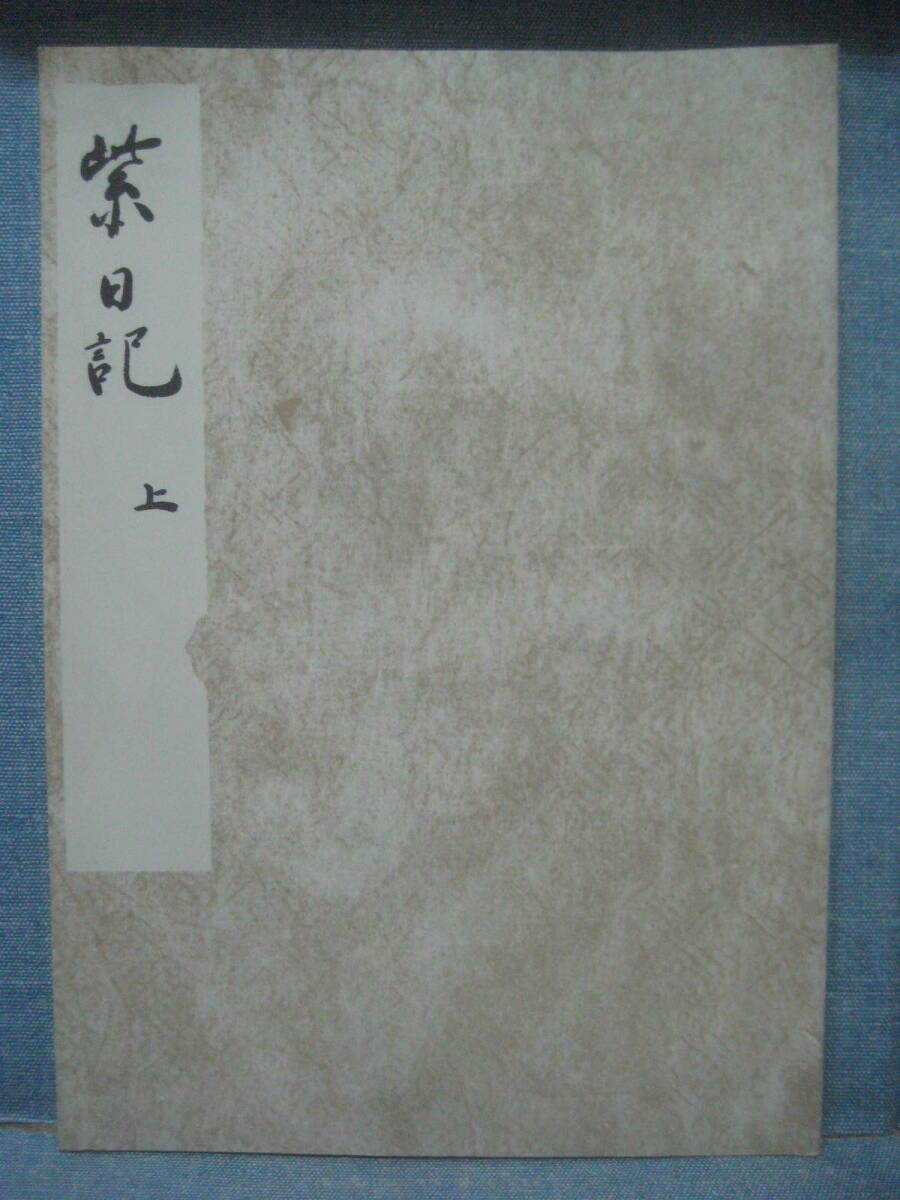 紫日記
上